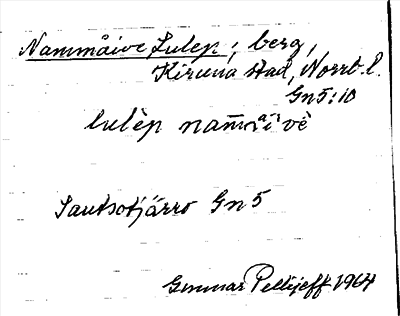 Nammåive Lulep; berg,
Kiruna stad, Norrb. l.
Gn5:10
lulèp nam̄ài vè
Sautsotjårro Gn 5
Gunnar Pellijeff 1964